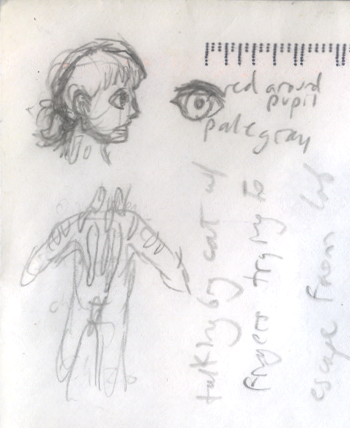 red around
pupil
pale gray
talking big cat w/
fingers trying to
escape from lab